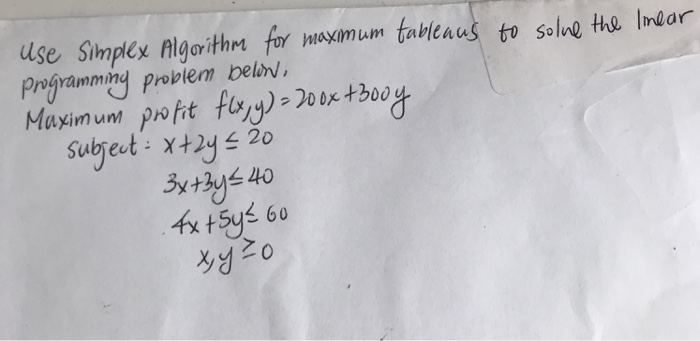 Use Simplex Algorithm for maximum tableaus to solve the linear
programming problem below.
Maximum profit f(x,y) = 200x+300y
subject: x+2y ≤ 20
3x+3y ≤ 40
4x+5y ≤ 60
x,y ≥ 0